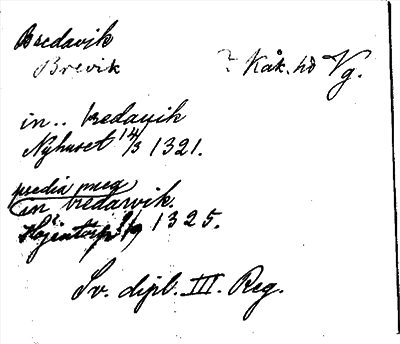 Bredavik
Brevik ? Kåk. hd Vg.
in.. bredauik
Nyhuset 14/3 1321.
predia mea
in bredawik.
1325.
Sv. dipl. III. Reg.